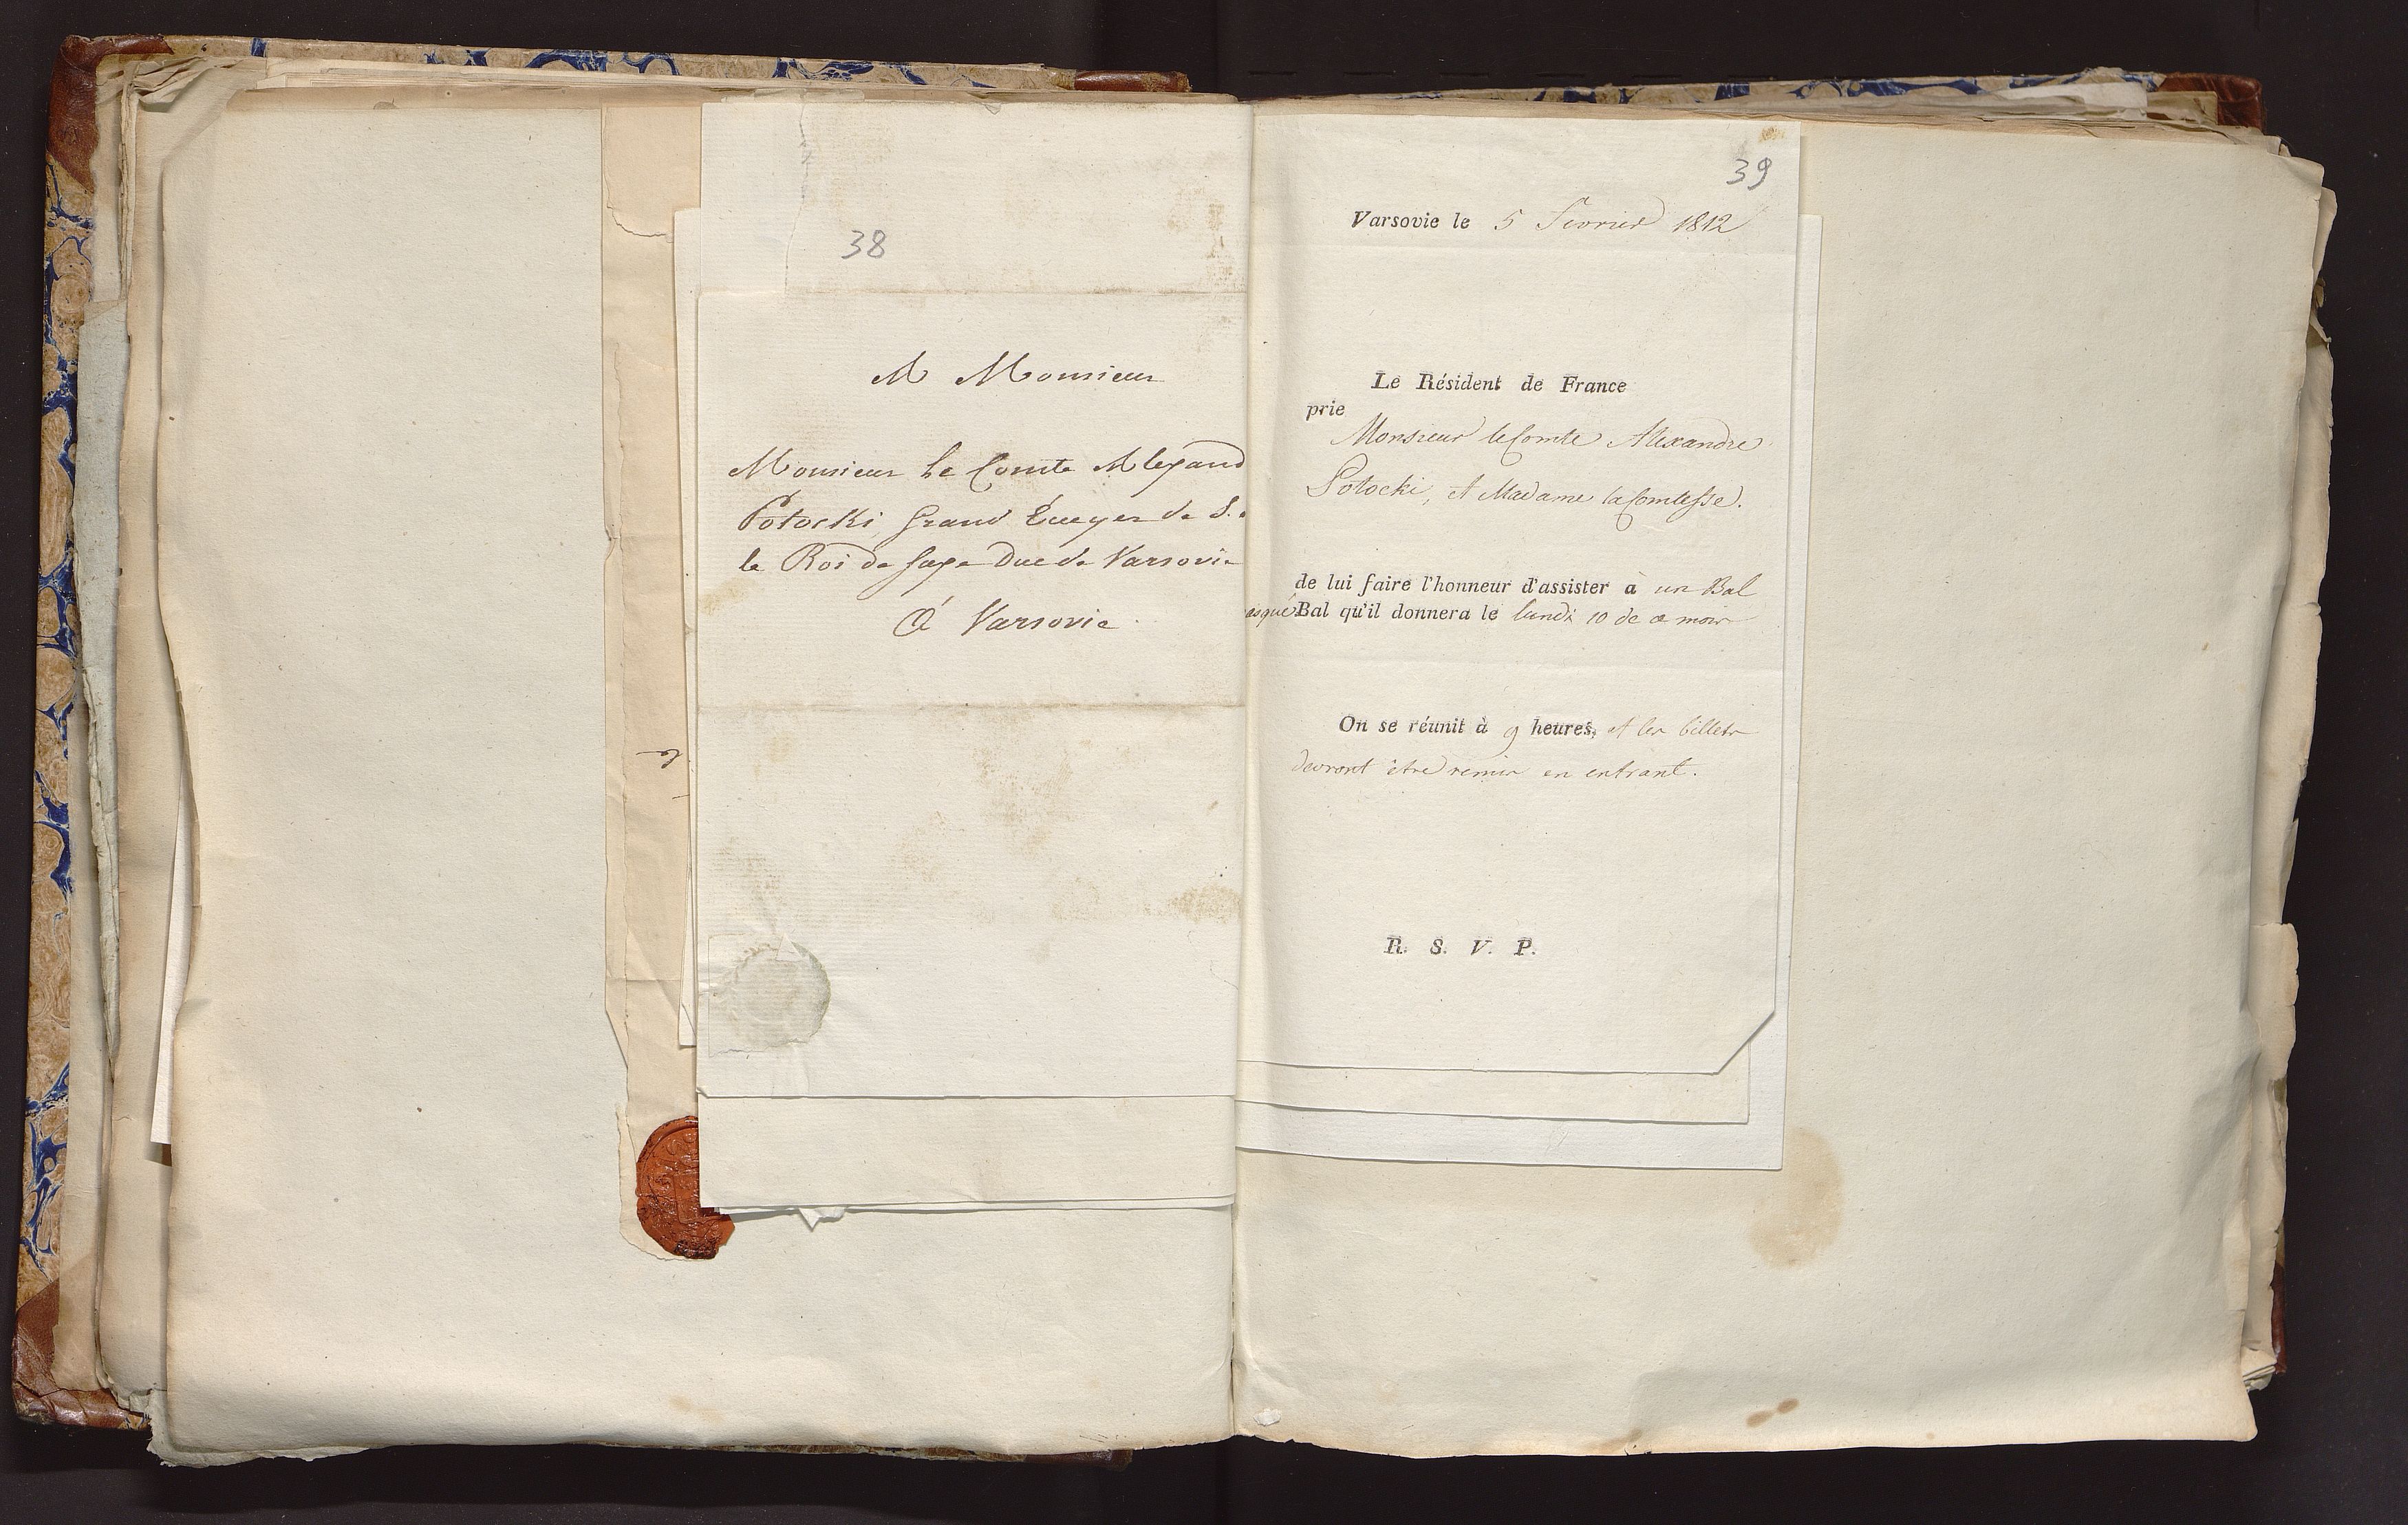 38
A Monsieur
Monsieur le Comte Alexand
Potocki, Grand Ecuyer de S.
le Roi de Saxe Duc de Varsovie
à Varsovie
39
Varsovie le 5 Fevrier 1812
Le Résident de France
prie
Monsieur le Comte Alexandre
Potocki, et Madame la Comtesse.
de lui faire l'honneur d'assister à un Bal
asqué Bal qu'il donnera le lundi 10 de ce mois
On se réunit à 9 heures, et les billets
devront être remis en entrant.
R. S. V. P.